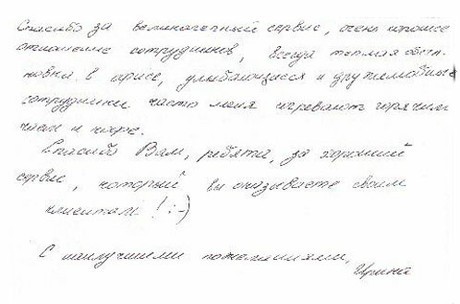 Спасибо за великолепный сервис, очень хорошее
отношение сотрудников, всегда теплая обста-
новка в офисе, улыбающиеся и дружелюбные
сотрудники часто меня согревают горячим
чаем и кофе.
Спасибо Вам, ребята, за хороший
сервис, который вы оказываете своим
клиентам! :-)
С наилучшими пожеланиями,
Ирина